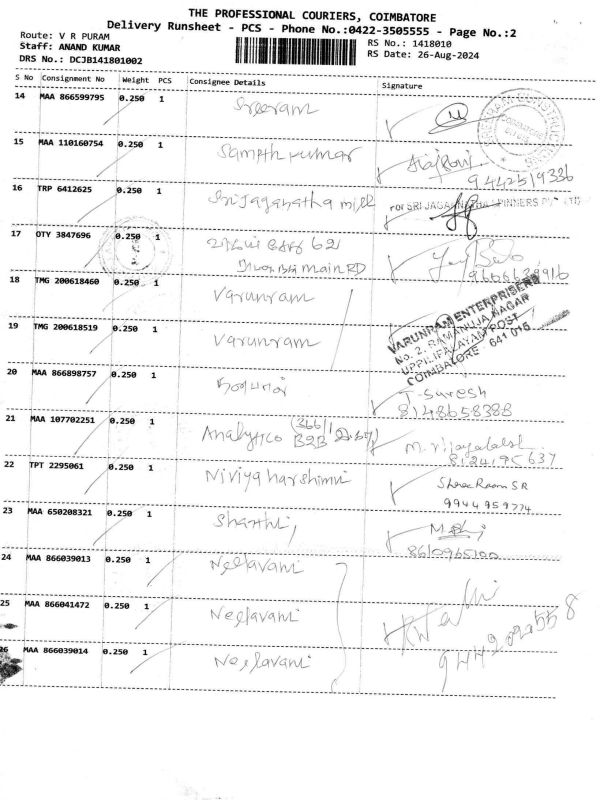 THE PROFESSIONAL COURIERS, COIMBATORE
Delivery Runsheet - PCS - Phone No.:0422-3505555 - Page No.:2
Route: V R PURAM
RS No.: 1418010
Staff: ANAND KUMAR
RS Date: 26-Aug-2024
DRS No.: DCJB141801002
S No Consignment No Weight PCS Consignee Details Signature
14 MAA 866599795 0.250 1 Sreeram
15 MAA 110160754 0.250 1 Sampth Kumar
9442519336
16 TRP 6412625 0.250 1 Srijaganatha mill
For SRI JAGANNATHA SPINNERS PVT LTD
17 OTY 3847696 0.250 1
main RD
18 TMG 200618460 0.250 1 Varunram
VARUNRAM ENTERPRISERS
No. 2, RAMANUJA NAGAR
UPPILIPALAYAM POST
COIMBATORE - 641 015
19 TMG 200618519 0.250 1 Varunram
20 MAA 866898757 0.250 1
T-Suresh
8148658388
21 MAA 107702251 0.250 1 Analytico (366/1 B2B
8124195637
22 TPT 2295061 0.250 1 Niviyaharshini
Shree Raam SR
9944959774
23 MAA 650208321 0.250 1 Shanthi
8610965100
24 MAA 866039013 0.250 1 Neelavani
25 MAA 866041472 0.250 1 Neelavani
26 MAA 866039014 0.250 1 Neelavani